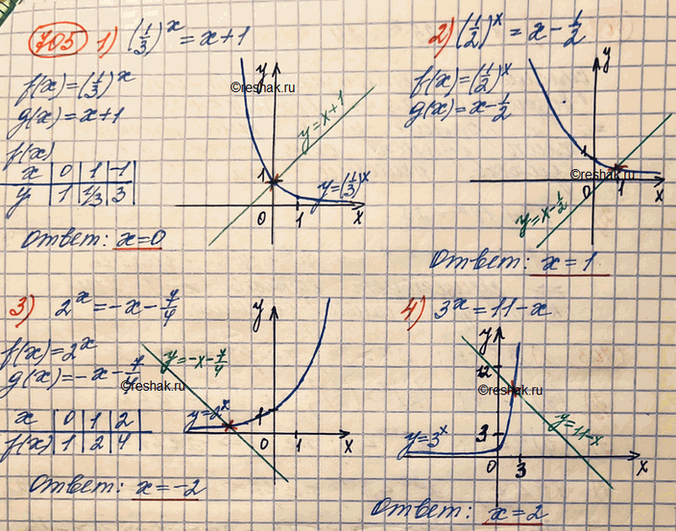 705 1) (1/3)^x = x+1
f(x)=(1/3)^x
g(x)=x+1
f(x)
x | 0 | 1 | -1
y | 1 | 1/3 | 3
y
©reshak.ru
y=x+1
1
y=(1/3)^x
0 1 x
Ответ: x=0
2) (1/2)^x = x - 1/2
f(x)=(1/2)^x
g(x)=x-1/2
y
1
©reshak.ru
0 1 x
y=x-1/2
Ответ: x=1
3) 2^x = -x - 7/4
f(x)=2^x
g(x)=-x-7/4
©reshak.ru
x | 0 | 1 | 2
f(x) | 1 | 2 | 4
y
y=-x-7/4
y=2^x
1
0 1 x
Ответ: x=-2
4) 3^x = 11-x
y
12
©reshak.ru
y=11-x
y=3^x
3
0 3 x
Ответ: x=2